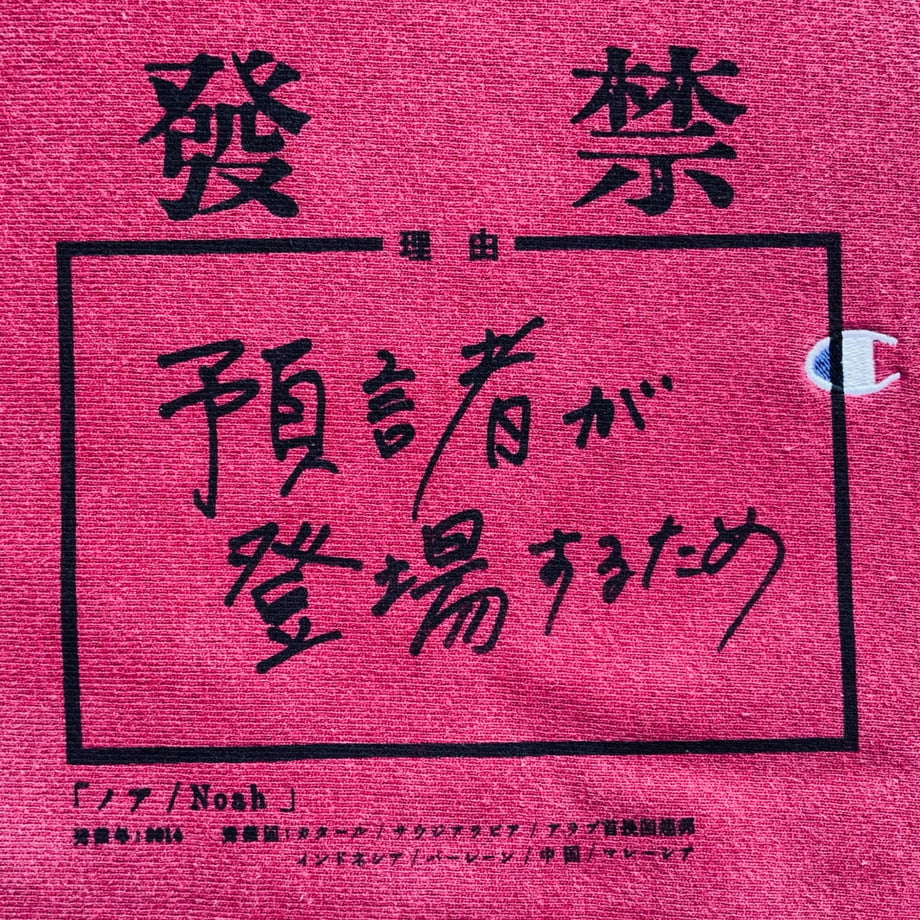 發 禁
理 由
預言者が
登場するため
「ノア / Noah 」
2014 カタール / サウジアラビア / アラブ首長国連邦
インドネシア / バーレーン / 中国 / マレーシア